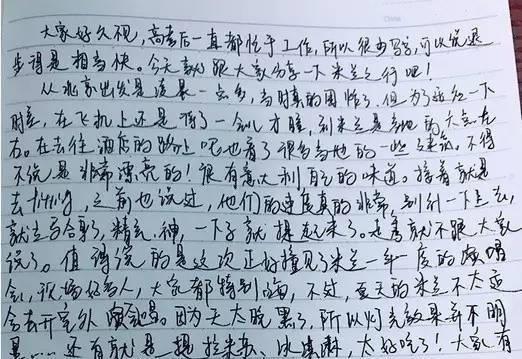 大家好久不见，高考后一直都忙于工作，所以很少写字，可以说退
步得是相当快。今天就跟大家分享一下米兰之行吧！
从北京出发是凌晨一点多，当时真的困炸了，但为了适应一下
时差，在飞机上还是等了一会儿才睡，到米兰是当地的大清早
右。在去往酒店的路上呢也看了很多当地的一些建筑。不得
不说是非常漂亮的！很有意大利自己的味道。接着就是
去fitting，之前也说过，他们的速度真的非常，别针一下上去，
就立马合身了，精气神，一下子就提起来了。走秀就不跟大家
说了。值得说的是这次正好撞见了米兰一年一度的演唱
会，现场好多人，大家都特别嗨，不过，夏天的米兰不太适
合去开室外演唱会。因为天太晚黑了，所以灯光效果并不明
显……还有就是提拉米苏、冰淇淋，太好吃了！大家有